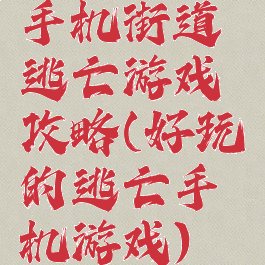 手机街道
逃亡游戏
攻略(好玩
的逃亡手
机游戏)